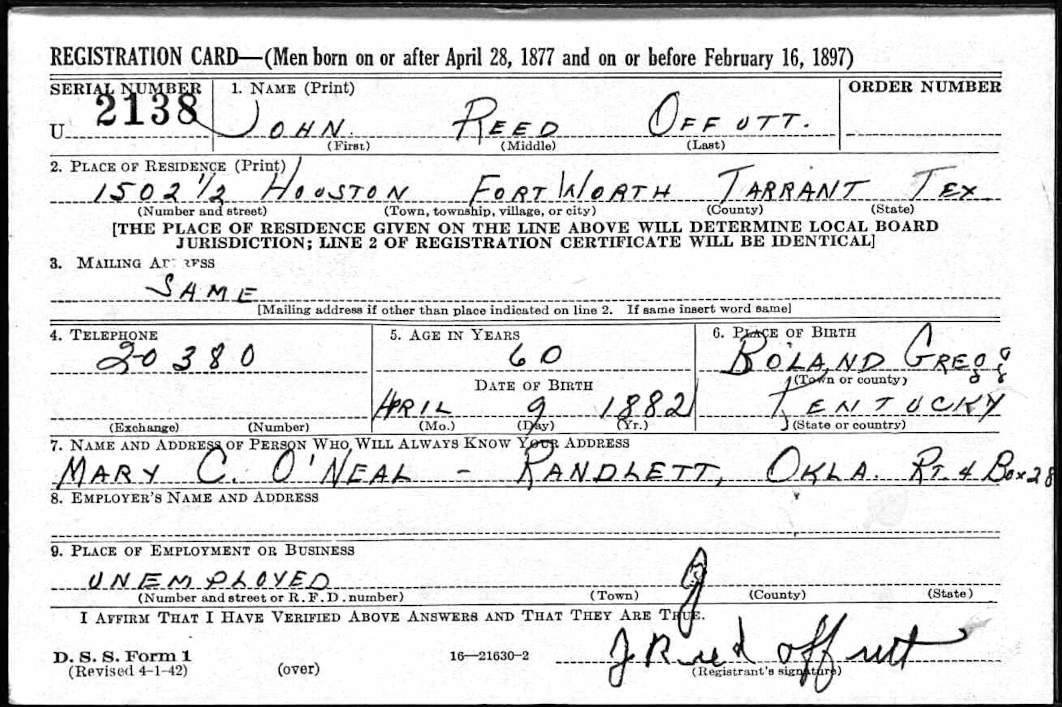 REGISTRATION CARD—(Men born on or after April 28, 1877 and on or before February 16, 1897)
SERIAL NUMBER 1. NAME (Print) ORDER NUMBER
U 2138 JOHN. REED OFFUTT.
(First) (Middle) (Last)
2. PLACE OF RESIDENCE (Print)
1502 1/2 HOUSTON FORT WORTH TARRANT TEX
(Number and street) (Town, township, village, or city) (County) (State)
[THE PLACE OF RESIDENCE GIVEN ON THE LINE ABOVE WILL DETERMINE LOCAL BOARD
JURISDICTION; LINE 2 OF REGISTRATION CERTIFICATE WILL BE IDENTICAL]
3. MAILING ADDRESS
SAME
[Mailing address if other than place indicated on line 2. If same insert word same]
4. TELEPHONE 5. AGE IN YEARS 6. PLACE OF BIRTH
20380 60 BOLAND GREGG
DATE OF BIRTH (Town or county)
APRIL 9 1882 KENTUCKY
(Exchange) (Number) (Mo.) (Day) (Yr.) (State or country)
7. NAME AND ADDRESS OF PERSON WHO WILL ALWAYS KNOW YOUR ADDRESS
MARY C. O'NEAL - RANDLETT, OKLA. RT. 4 Box 28
8. EMPLOYER'S NAME AND ADDRESS
9. PLACE OF EMPLOYMENT OR BUSINESS
UNEMPLOYED
(Number and street or R. F. D. number) (Town) (County) (State)
I AFFIRM THAT I HAVE VERIFIED ABOVE ANSWERS AND THAT THEY ARE TRUE.
J Reed Offutt
D. S. S. Form 1
(Revised 4-1-42) (over) 16—21630-2 (Registrant's signature)